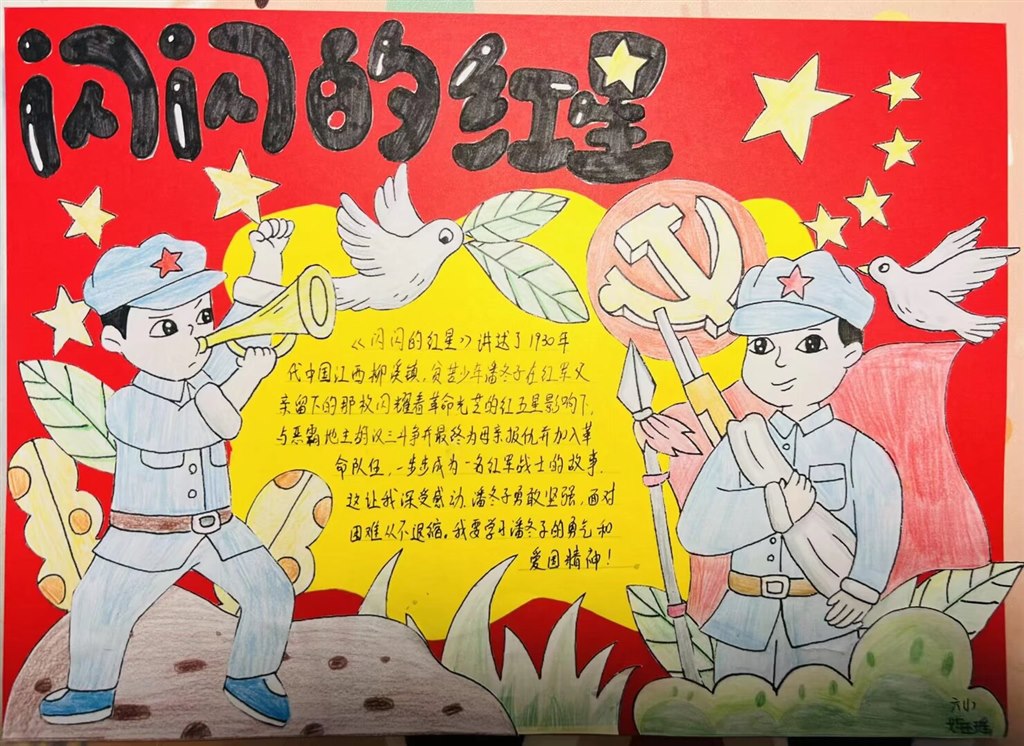 闪闪的红星
《闪闪的红星》讲述了1930年
代中国江西柳溪镇，贫苦少年潘冬子在红军父
亲留下的那枚闪耀着革命光芒的红五星影响下，
与恶霸地主胡汉三斗争并最终为母亲报仇并加入革
命队伍，一步步成为一名红军战士的故事。
这让我深受感动，潘冬子勇敢坚强，面对
困难从不退缩。我要学习潘冬子的勇气和
爱国精神！